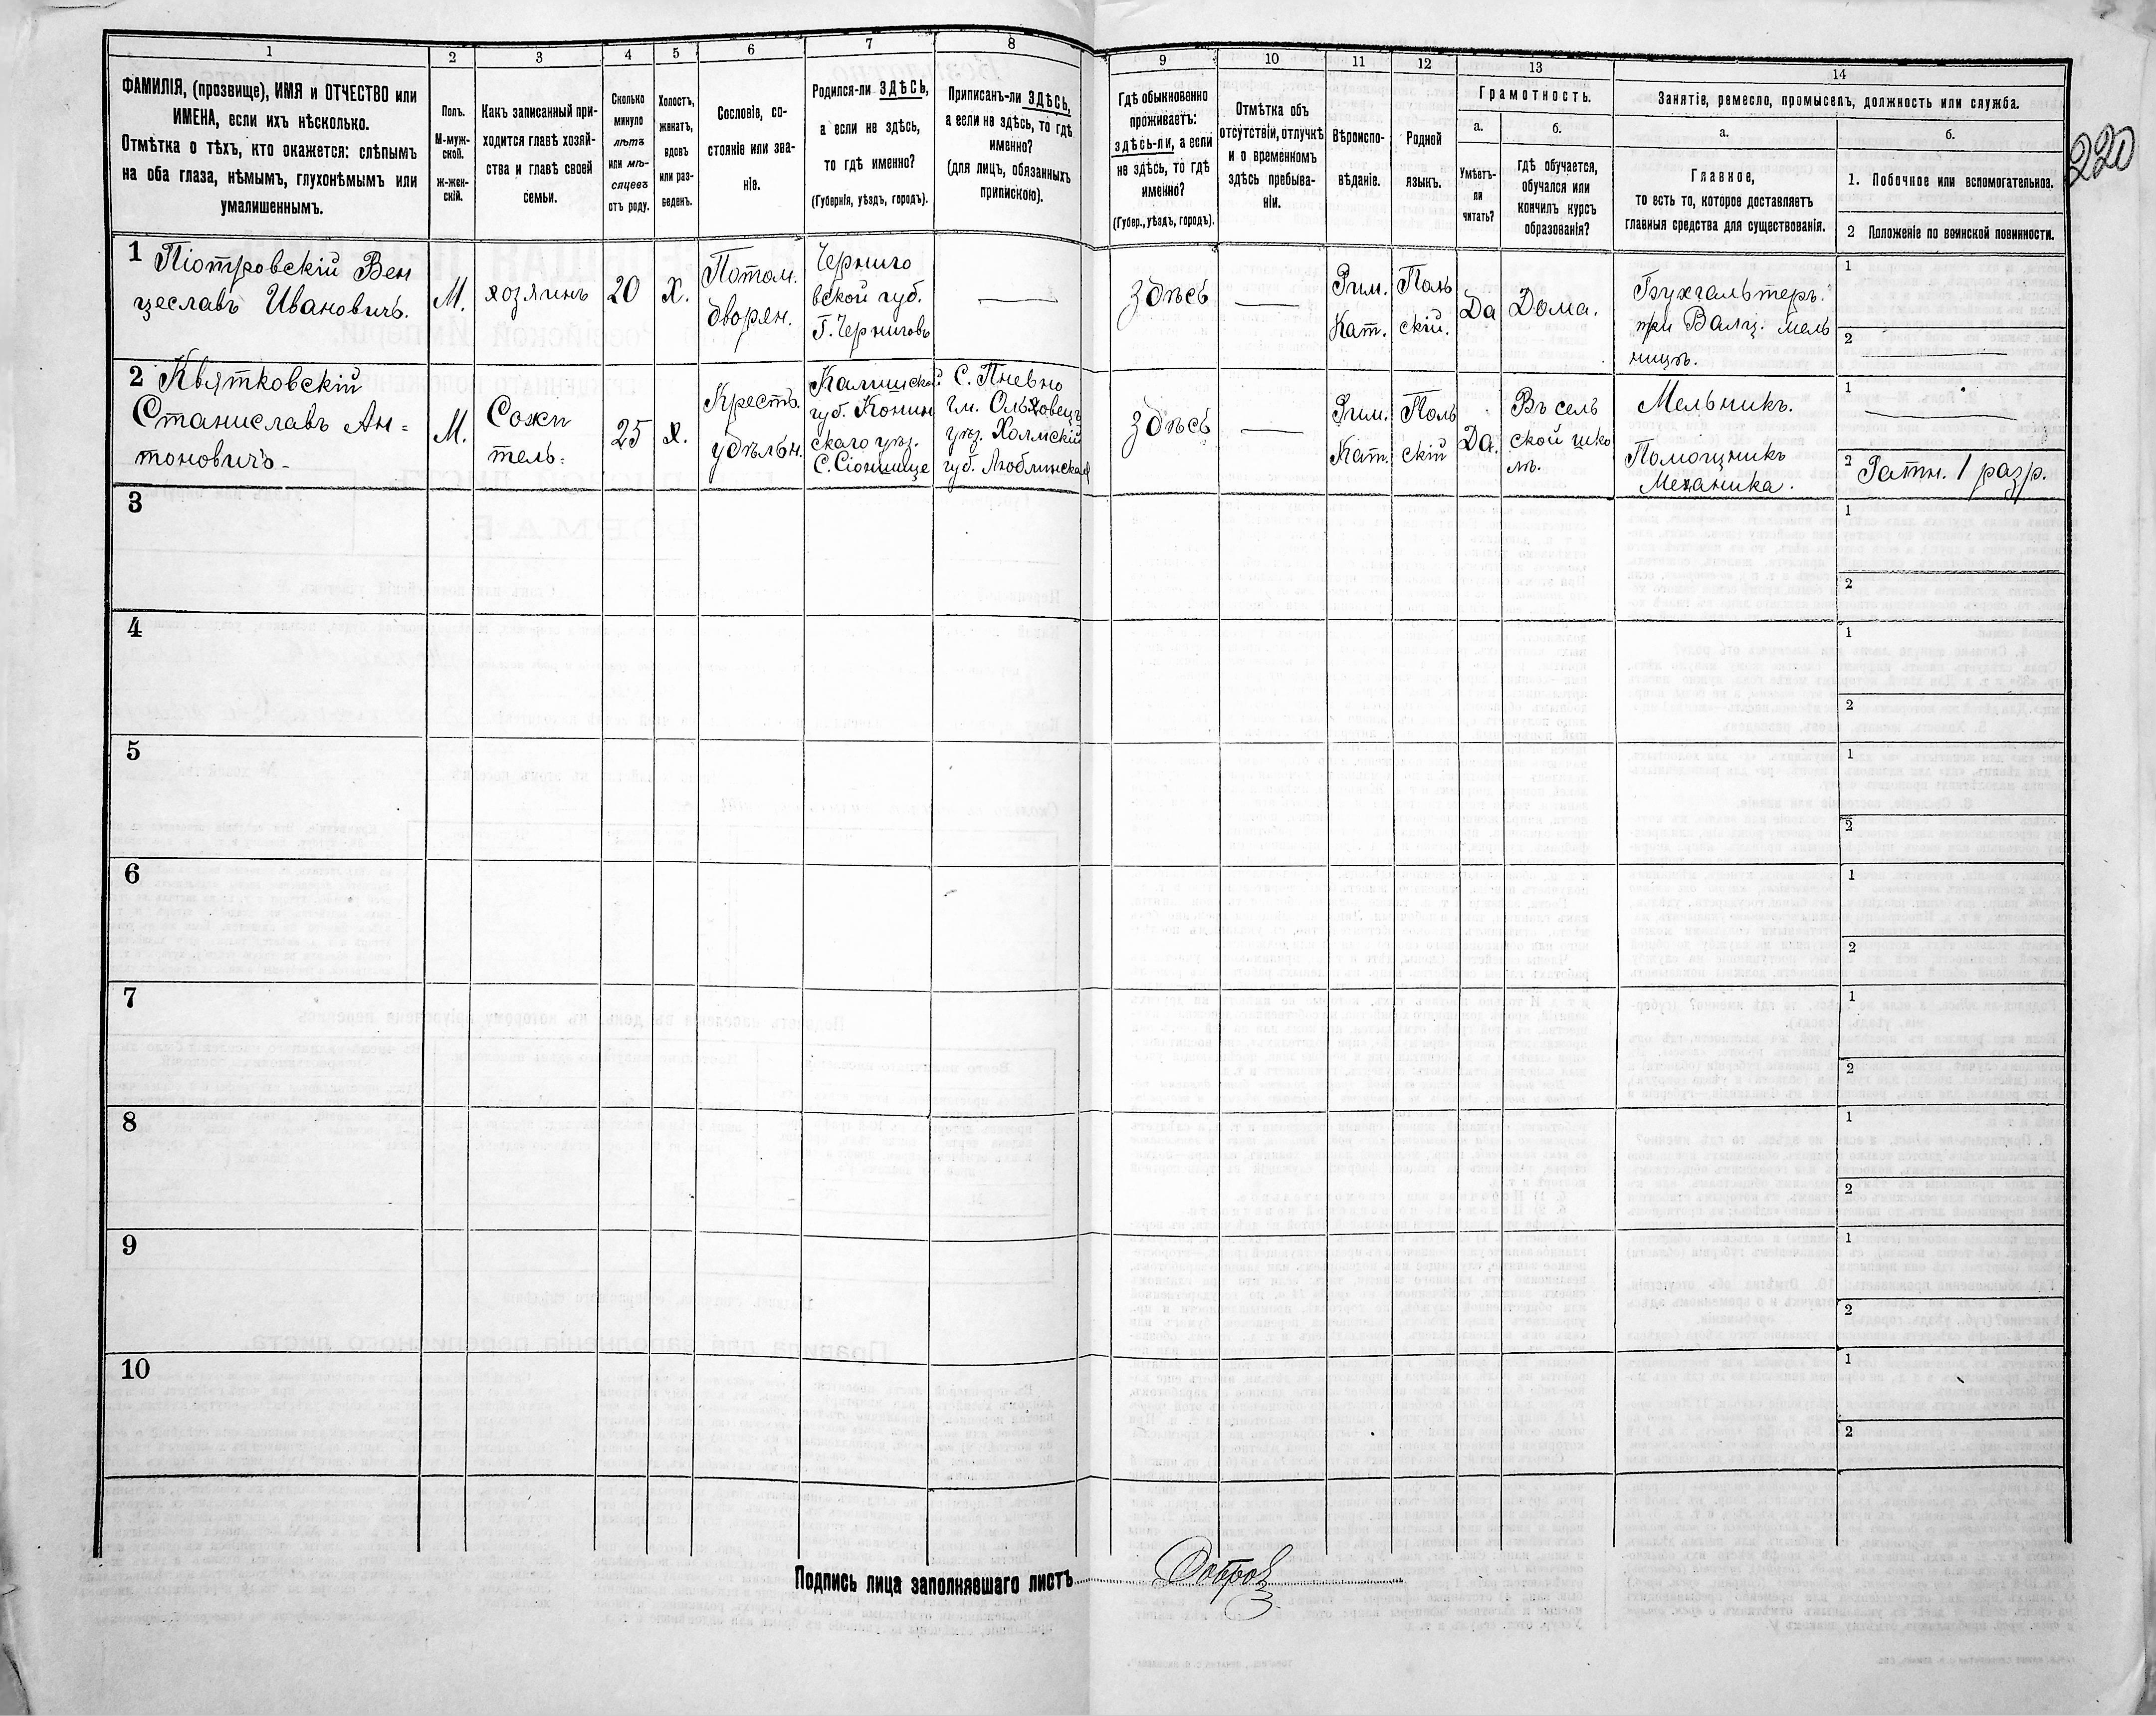 1
2
3
4
5
6
7
8
9
10
11
12
13
14
ФАМИЛІЯ, (прозвище), ИМЯ и ОТЧЕСТВО или
ИМЕНА, если ихъ нѣсколько.
Отмѣтка о тѣхъ, кто окажется: слѣпымъ
на оба глаза, нѣмымъ, глухонѣмымъ или
умалишеннымъ.
Полъ.
М-муж-
ской.
ж-жен-
скій.
Какъ записанный при-
ходится главѣ хозяй-
ства и главѣ своей
семьи.
Сколько
минуло
лѣтъ
или мѣ-
сяцевъ
отъ роду.
Холостъ,
женатъ,
вдовъ
или раз-
веденъ.
Сословіе, со-
стояніе или зва-
ніе.
Родился-ли ЗДѢСЬ,
а если не здѣсь,
то гдѣ именно?
(Губернія, уѣздъ, городъ).
Приписанъ-ли ЗДѢСЬ,
а если не здѣсь, то гдѣ
именно?
(для лицъ, обязанныхъ
припискою).
Гдѣ обыкновенно
проживаетъ:
здѣсь-ли, а если
не здѣсь, то гдѣ
именно?
(Губер., уѣздъ, городъ).
Отмѣтка объ
отсутствіи, отлучкѣ
и о временномъ
здѣсь пребыва-
ніи.
Вѣроиспо-
вѣданіе.
Родной
языкъ.
Грамотность.
а.
Умѣетъ-
ли
читать?
б.
гдѣ обучается,
обучался или
кончилъ курсъ
образованія?
Занятіе, ремесло, промыселъ, должность или служба.
а.
Главное,
то есть то, которое доставляетъ
главныя средства для существованія.
б.
1. Побочное или вспомогательное.
2 Положеніе по воинской повинности.
220
1 Піотровскій Вен
цеславъ Ивановичъ.
М.
хозяинъ
20
х.
Потом.
дворян.
Черниго
вской губ.
Г. Черниговъ
здѣсь
Рим.
Кат.
Поль
скій.
Да
Дома.
Бухгальтеръ.
при Валц. мель
ницѣ.
1
2
2 Квятковскій
Станиславъ Ан=
тоновичъ-
М.
Сожи
тель=
25
х.
Крест.
удѣльн.
Калишской
губ. Конин
скаго уѣз.
С. Сіонщице
С. Пневно
гм. Ольховецъ
уѣз. Холмскій
губ. Люблинская
здѣсь
Рим.
Кат.
Поль
скій
Да.
Въ сель
ской шко
лѣ.
Мельникъ.
Помощникъ
Механика.
1
2 Ратн. 1 разр.
3
1
2
4
1
2
5
1
2
6
1
2
7
1
2
8
1
2
9
1
2
10
1
2
Подпись лица заполнявшаго листъ